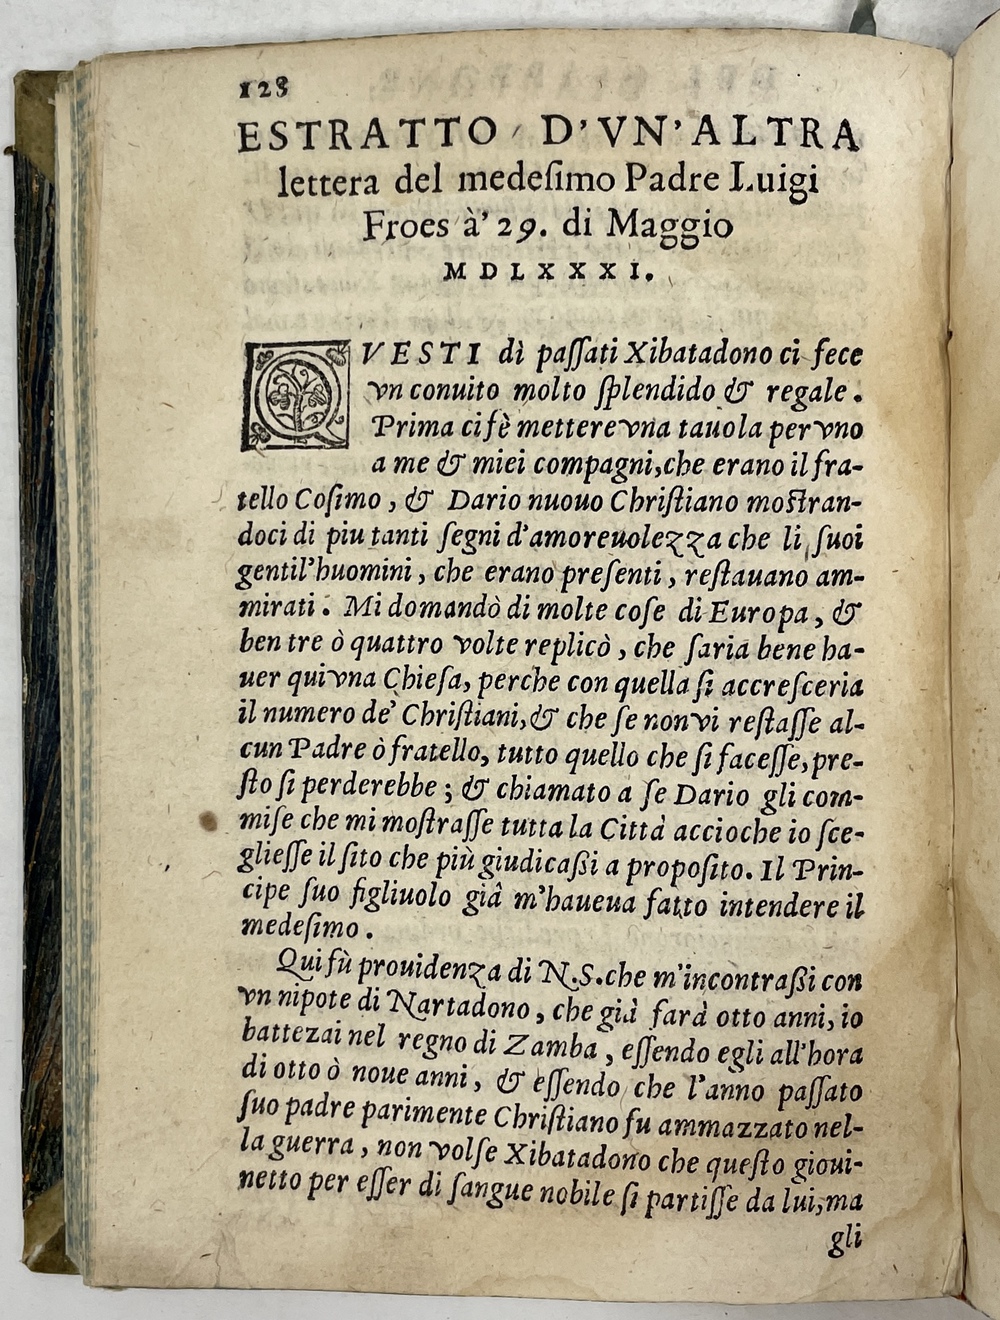 128
ESTRATTO D'VN'ALTRA
lettera del medeſimo Padre Luigi
Froes à' 29. di Maggio
MDLXXXI.
QVESTI dì paſſati Xibatadono ci fece
vn conuito molto ſplendido & regale.
Prima ci fè mettere vna tauola per vno
a me & miei compagni, che erano il fra-
tello Coſimo, & Dario nuouo Chriſtiano moſtran-
doci di piu tanti ſegni d'amoreuolezza che li ſuoi
gentil'huomini, che erano preſenti, reſtauano am-
mirati. Mi domandò di molte coſe di Europa, &
ben tre ò quattro volte replicò, che ſaria bene ha-
uer qui vna Chieſa, perche con quella ſi accreſceria
il numero de' Chriſtiani, & che ſe non vi reſtaſſe al-
cun Padre ò fratello, tutto quello che ſi faceſſe, pre-
ſto ſi perderebbe; & chiamato a ſe Dario gli com-
miſe che mi moſtraſſe tutta la Città accioche io ſce-
glieſſe il ſito che più giudicaßi a propoſito. Il Prin-
cipe ſuo figliuolo già m'haueua fatto intendere il
medeſimo.
Qui fù prouidenza di N.S. che m'incontraßi con
vn nipote di Nartadono, che già farà otto anni, io
battezai nel regno di Zamba, eſſendo egli all'hora
di otto ò noue anni, & eſſendo che l'anno paſſato
ſuo padre parimente Chriſtiano fu ammazzato nel-
la guerra, non volſe Xibatadono che queſto gioui-
netto per eſſer di ſangue nobile ſi partiſſe da lui, ma
gli